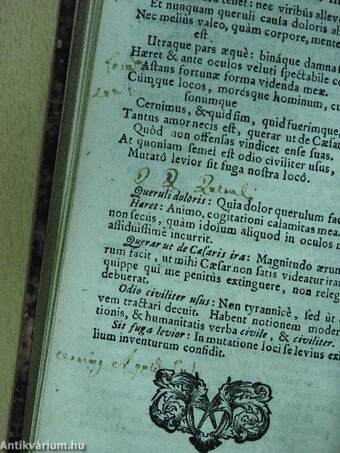 tenet: nec viribus allev
Et nunquam queruli causa doloris ab
Nec melius valeo, quàm corpore, mente
est.
Utraque pars æquè: bináque damna
Hæret & ante oculos veluti spectabile co
Astans fortunæ forma videnda meæ.
Cùmque locos, morésque hominum, cu
sonúmque
Cernimus, & quid sim, quid fuerimque,
Tantus amor necis est, querar ut de Cæsari
Quòd non offensas vindicet ense suas.
At quoniam semel est odio civiliter usus,
Mutatô levior sit fuga nostra locô.
Queruli doloris: Quia dolor querulum fac
Hæret: Animo, cogitationi calamitas mea
non secùs, quàm idolum aliquod in oculos m
assiduissimè incurrit.
Querar ut de Cæsaris ira: Magnitudo ærum
rum facit, ut mihi Cæsar non satis videatur irat
quippe qui me penitùs extinguere, non releg
debuerat.
Odio civiliter usus: Non tyrannicè, sed ut
vem tractari decuit. Habent notionem moder
tionis, & humanitatis verba civile, & civiliter.
Sit fuga levior: In mutatione loci se levius exi
lium inventurum confidit.
Antikvárium.hu